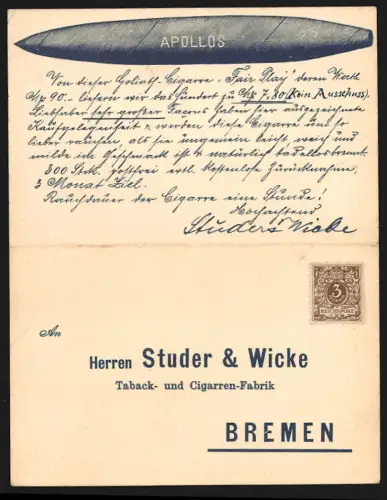 APOLLOS
Von dieser Goliath-Cigarre "Fair Play" deren Werth
M 90.- liefern wir das Hundert zu M 7.80 (Kein Ausschuss).
Liebhaber sehr großer Facons haben hier ausgezeichnete
Kaufgelegenheit & werden diese Cigarre um so
lieber rauchen, als sie ungemein leicht, weich und
milde im Geschmack ist & natürlich tadellos brennt.
300 Stck. postfrei evtl. kostenlose Zurücknahme,
3 Monat Ziel.
Rauchdauer der Cigarre eine Stunde!
Hochachtend
Studer & Wicke
3
REICHSPOST
An
Herren Studer & Wicke
Taback- und Cigarren-Fabrik
BREMEN